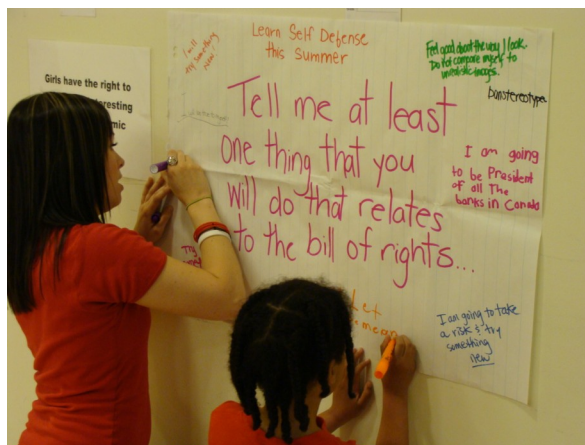 Girls have the right to
interesting
Learn Self Defense
this Summer
I will
try something
new!
Feel good about the way I look.
Do not compare myself to
unrealistic images.
banstereotypes
Tell me at least
one thing that you
will do that relates
to the bill of rights...
I am going
to be President
of all The
banks in Canada
Try
Let
mean
I am going to take
a risk & try
something
new